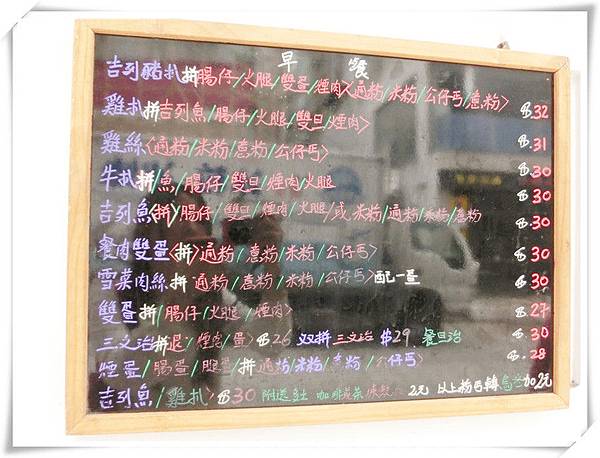 早 餐
吉列豬扒拼腸仔/火腿/雙蛋/煙肉〈通粉/米粉/公仔丐/意粉〉 $32
雞扒拼吉列魚/腸仔/火腿/雙旦/煙肉〉 $31
雞絲〈通粉/米粉/意粉/公仔丐〉 $30
牛扒拼/魚/腸仔/雙旦/煙肉/火腿 $30
吉列魚〈拼〉腸仔/雙旦/煙肉/火腿/或米粉/通粉/米粉/意粉 $30
餐肉雙蛋〈拼〉通粉/意粉/米粉/公仔丐〉 $30
雪菜肉絲拼通粉/意粉/米粉/公仔丐〉配一蛋 $30
雙蛋拼/腸仔/火腿/煙肉〉 $27
三文治拼退/煙肉/蛋〉$26 双拼三文治 $29 餐旦治 $30
煙蛋/腸蛋/腿蛋/拼通粉/米粉/意粉/公仔丐〉 $28
吉列魚/雞扒〉$30 附送多士 咖啡或茶 凍飲 2元 以上粉丐轉烏冬加2元